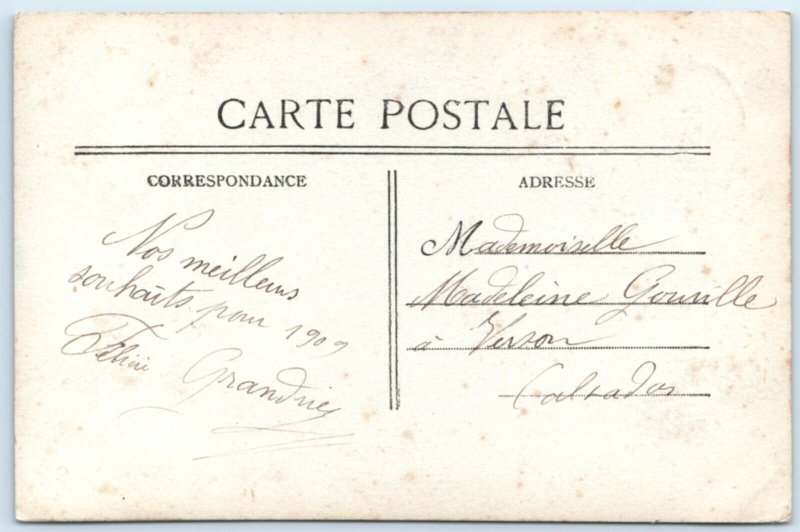 CARTE POSTALE
CORRESPONDANCE
Nos meilleurs
souhaits pour 1909
Grandrie
ADRESSE
Mademoiselle
Madeleine Gouville
à Verson
Calvados